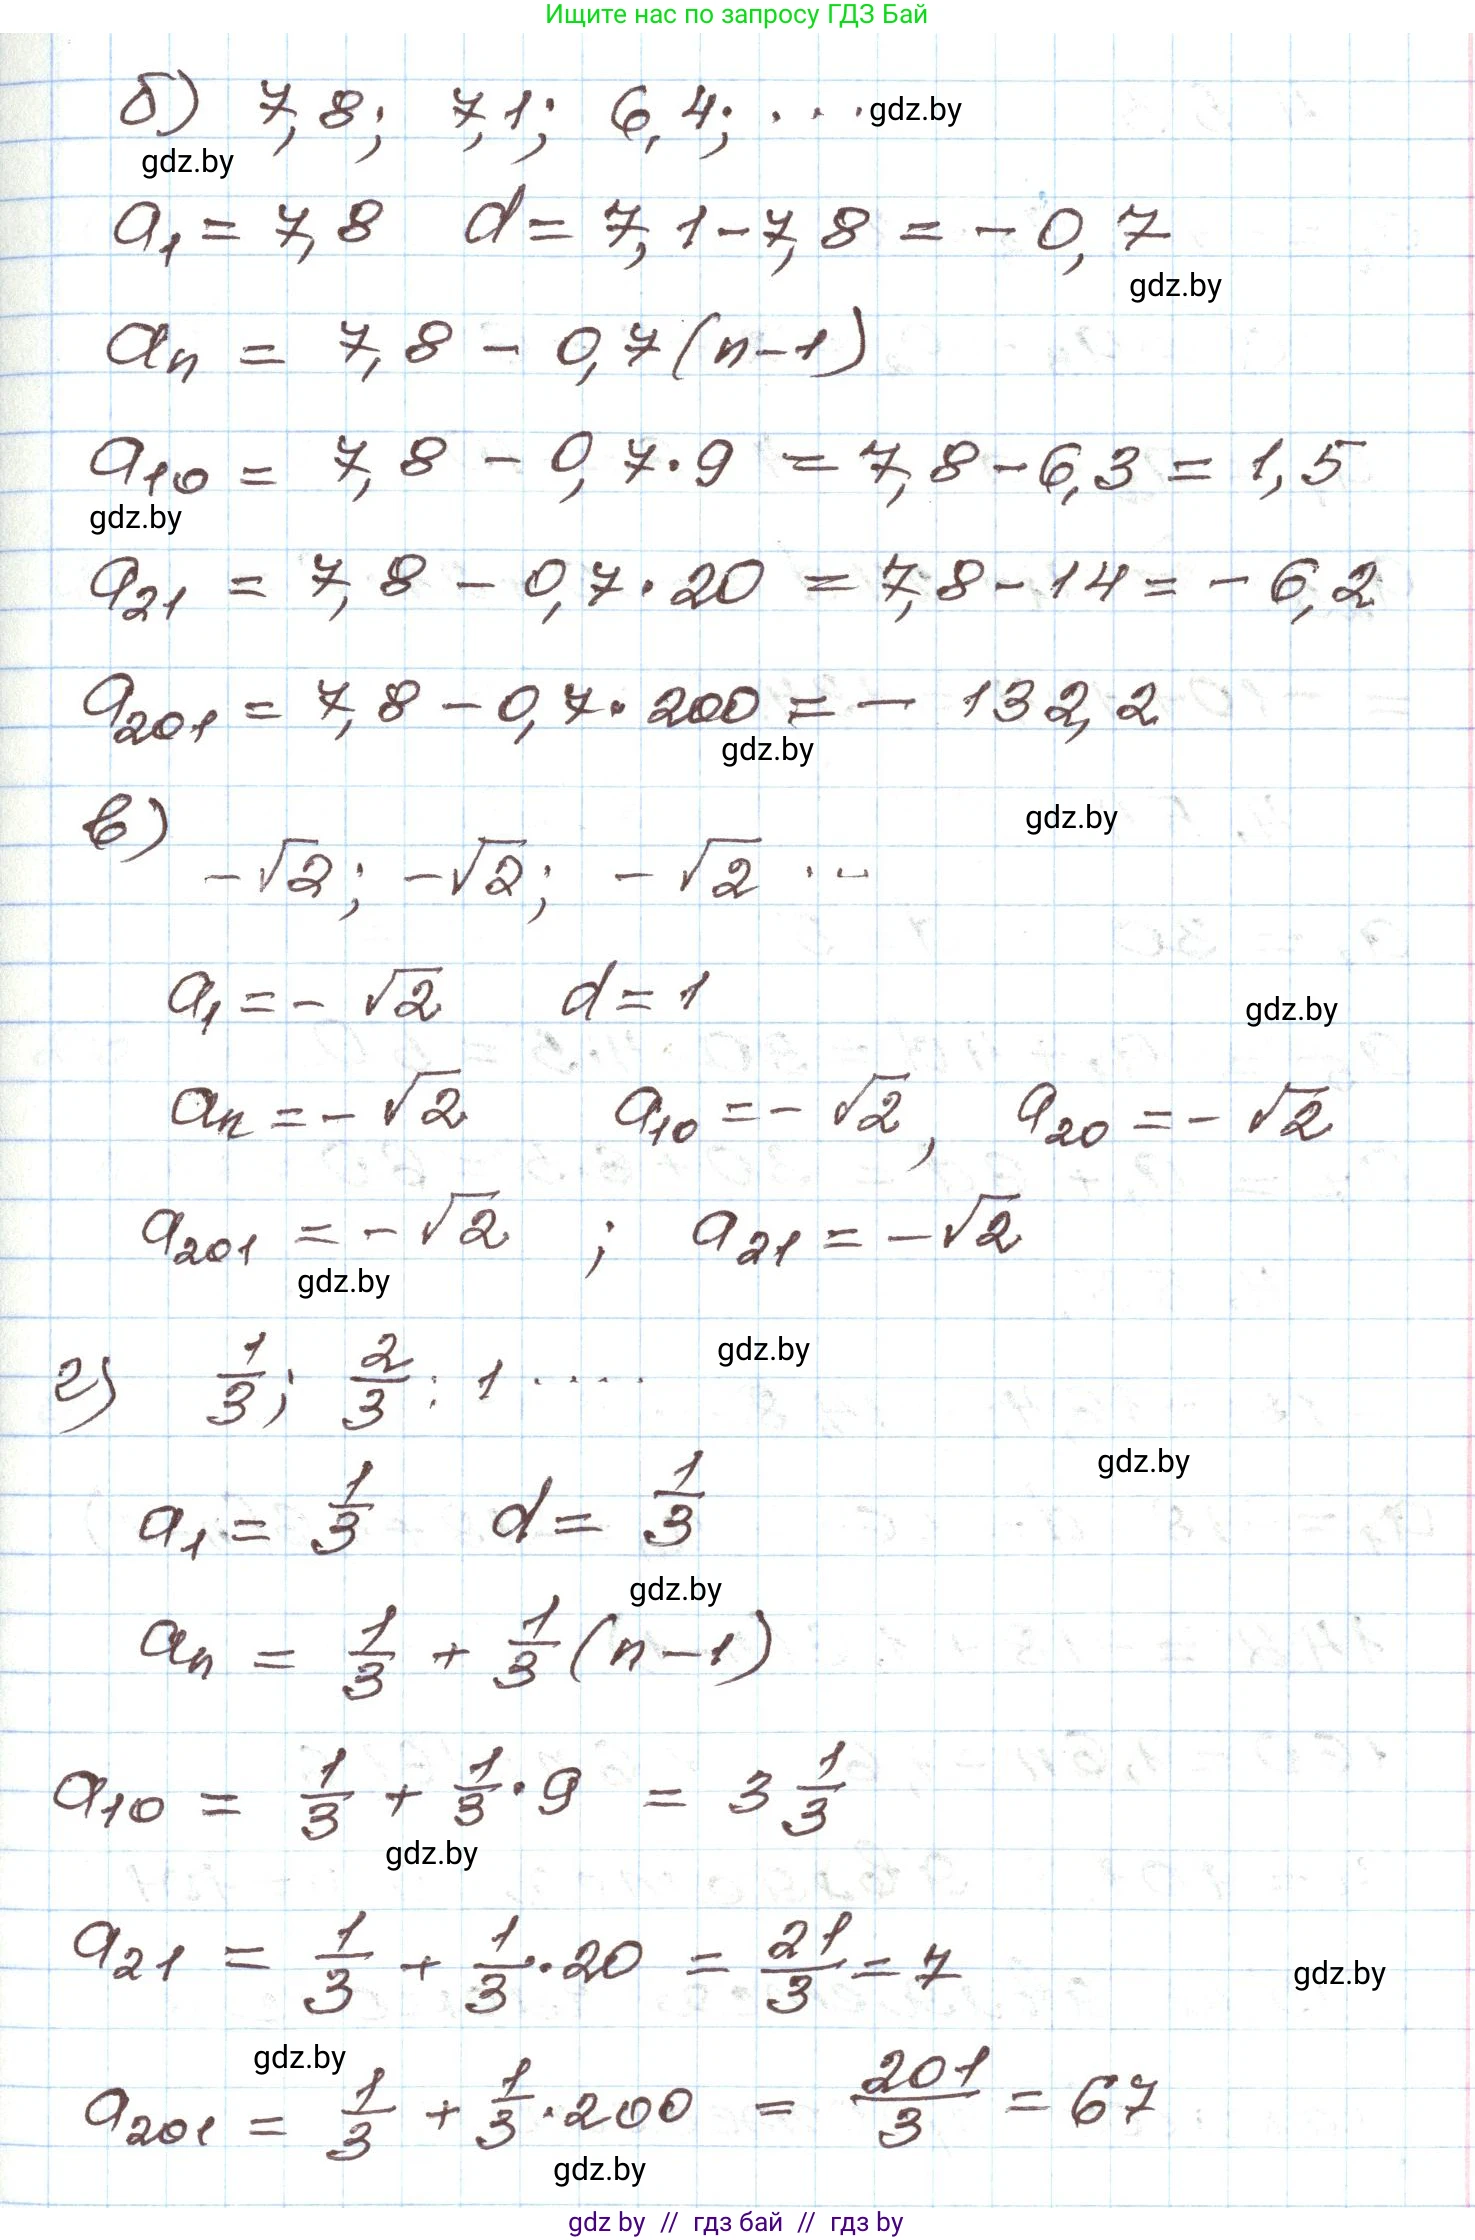 Ищите нас по запросу ГДЗ Бай
б) 7,8; 7,1; 6,4; ... gdz.by
gdz.by
a₁ = 7,8 d = 7,1 - 7,8 = - 0,7
gdz.by
aₙ = 7,8 - 0,7(n-1)
a₁₀ = 7,8 - 0,7·9 = 7,8 - 6,3 = 1,5
gdz.by
a₂₁ = 7,8 - 0,7·20 = 7,8 - 14 = - 6,2
a₂₀₁ = 7,8 - 0,7·200 = - 132,2
gdz.by
в) gdz.by
-√2; -√2; -√2 ...
a₁ = - √2 d = 1
gdz.by
aₙ = - √2 a₁₀ = - √2, a₂₀ = - √2
a₂₀₁ = - √2 ; a₂₁ = -√2
gdz.by
г) 1/3; 2/3: 1 .... gdz.by
gdz.by
a₁ = 1/3 d = 1/3
gdz.by
aₙ = 1/3 + 1/3(n-1)
a₁₀ = 1/3 + 1/3·9 = 3 1/3
gdz.by
a₂₁ = 1/3 + 1/3·20 = 21/3 = 7
gdz.by
gdz.by
a₂₀₁ = 1/3 + 1/3·200 = 201/3 = 67
gdz.by
gdz by // гдз бай // гдз by